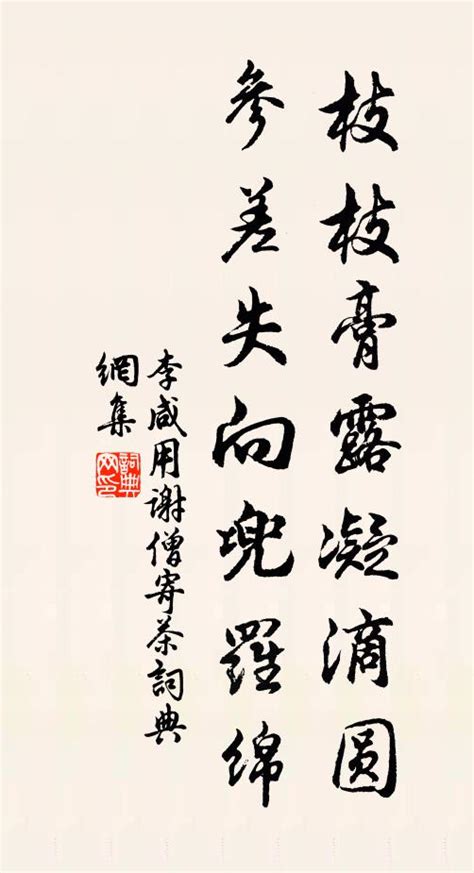 枝枝膏露凝滴圆
參差失向兜羅绵
李咸用谢僧寄茶詞典
網集
詞典
网印